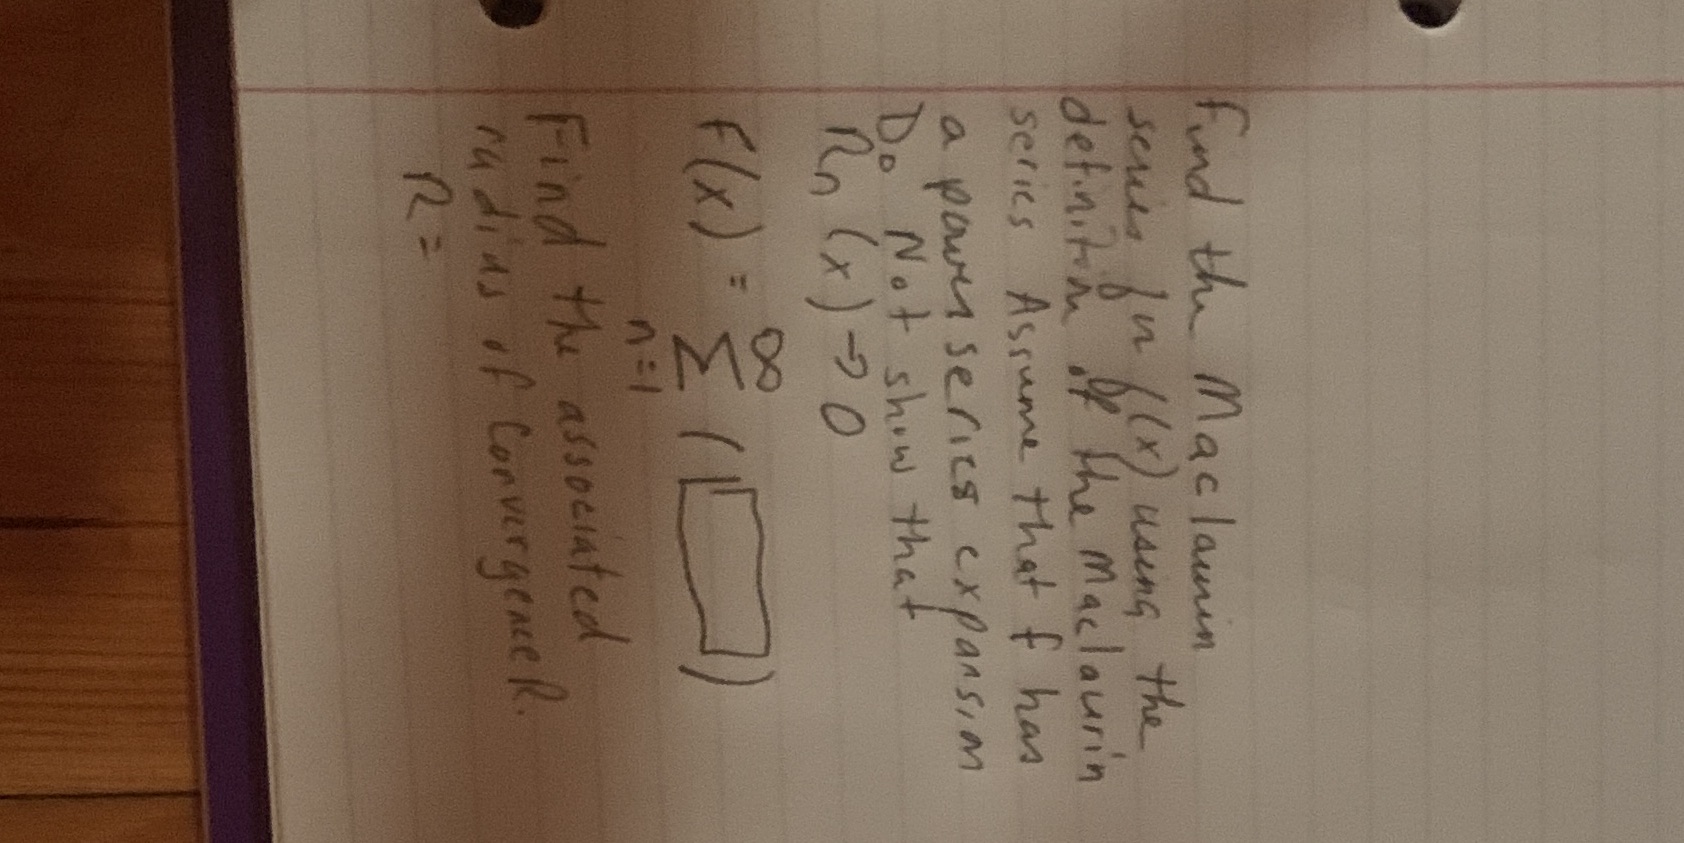 Find the Maclaurin
series for f(x) using the
definition of the Maclaurin
series Assume that f has
a power series expansion
Do Not show that
Rn (x) → 0
f(x) = ∞∑n=1 ( )
Find the associated
radius of Convergence R.
R =